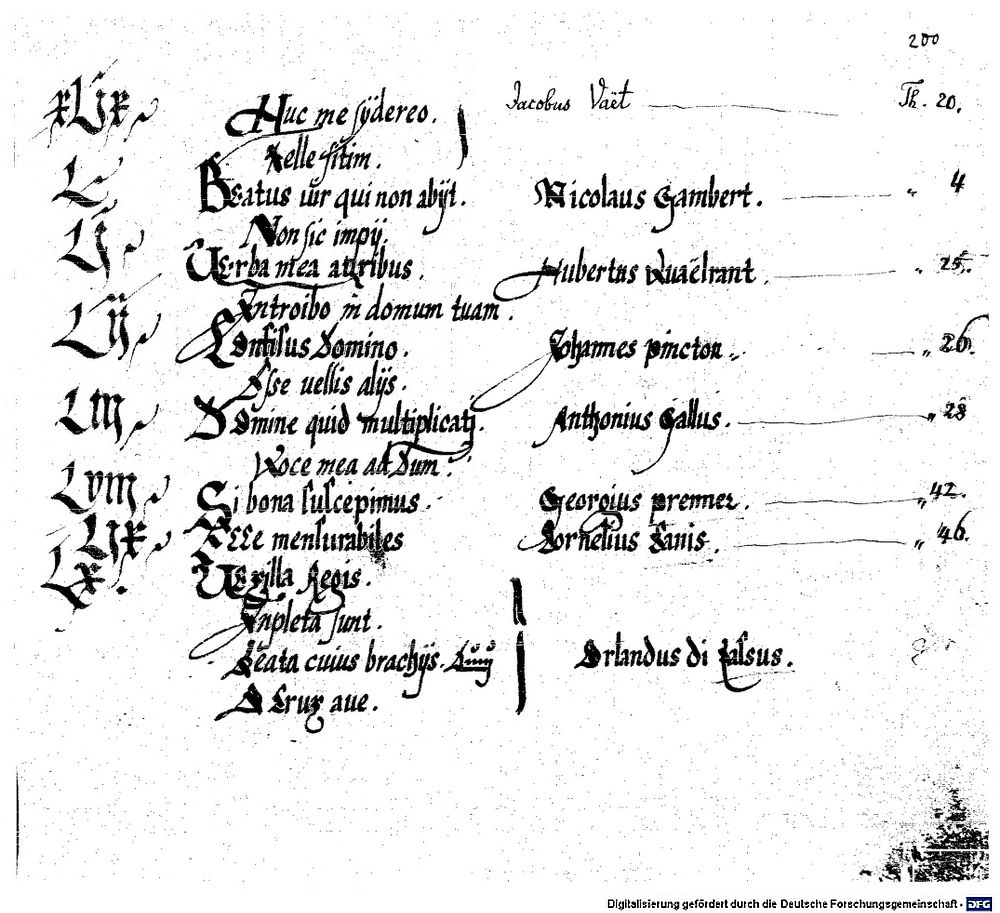 200
Huc me sÿdereo. Jacobus Vaët Th. 20.
Felle sitim.
L Beatus uir qui non abÿt. Nicolaus Gambert. " 4
Non sic impÿ.
Lÿ Uerba mea auribus. Hubertus Waëlrant " 25.
Introibo in domum tuam.
Confisus Domino. Johannes pincton " 26.
Esse uellis alÿs.
Domine quid multiplicati. Anthonius Gallus. " 28
Uoce mea ad Dum.
Si bona suscepimus. Georgius prenner. " 42.
Ecce mensurabiles Cornelius Canis. " 46.
Lx. Uexilla Regis.
Inpleta sunt.
Beata cuius brachÿs.
O Crux aue.
Orlandus di Lassus.
Digitalisierung gefördert durch die Deutsche Forschungsgemeinschaft - DFG